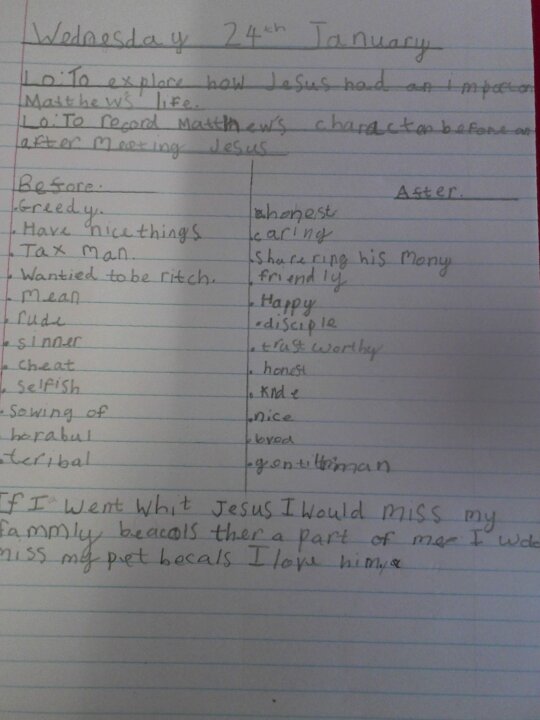 Wednesday 24th January
Lo: To explore how Jesus had an impact on
Matthew's life.
Lo: To record Matthew's charactor before an
after Meeting Jesus
Before.
After.
. Greedy.
. Have nice things
. Tax man.
. Wantied to be ritch.
. mean
. rude
. sinner
. cheat
. selfish
. sowing of
. horabul
. teribal
. honest
. caring
. sharering his mony
. friendly
. Happy
. disciple
. trust worthy
. honest
. kide
. nice
. loved
. gentilman
If I went whit Jesus I Would miss my
fammly beacals ther a part of me I
miss my pet becals I love him